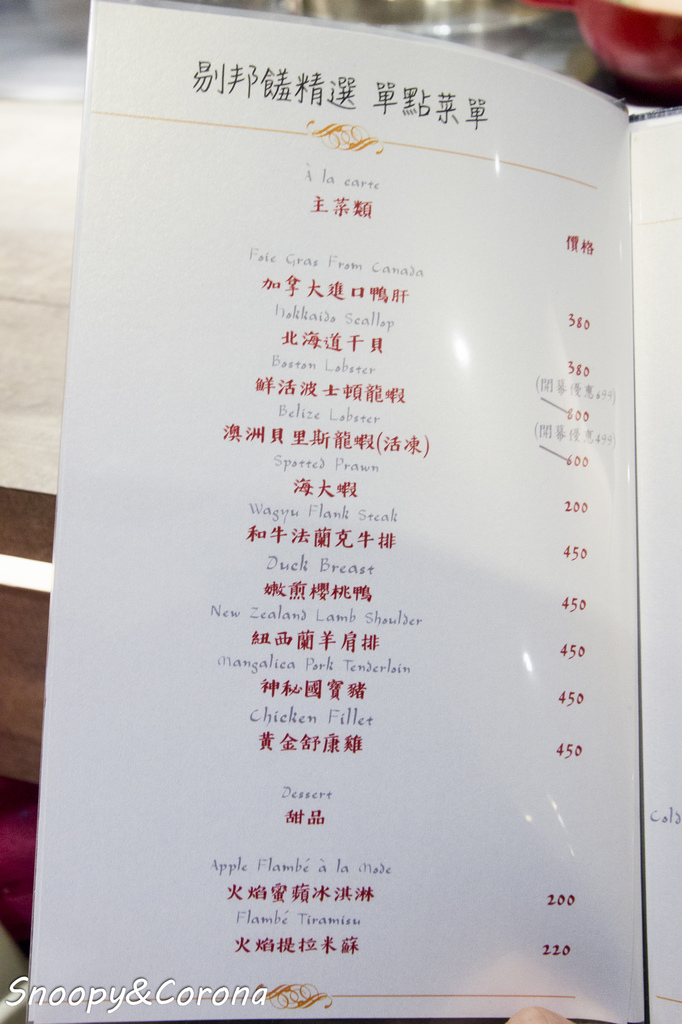 剔邦饈精選 單點菜單
À la carte
主菜類
價格
Foie Gras From Canada
加拿大進口鴨肝 380
Hokkaido Scallop
北海道干貝 380
Boston Lobster (開幕優惠699)
鮮活波士頓龍蝦 800
Belize Lobster (開幕優惠499)
澳洲貝里斯龍蝦(活凍) 600
Spotted Prawn
海大蝦 200
Wagyu Flank Steak
和牛法蘭克牛排 450
Duck Breast
嫩煎櫻桃鴨 450
New Zealand Lamb Shoulder
紐西蘭羊肩排 450
Mangalica Pork Tenderloin
神秘國寶豬 450
Chicken Fillet
黃金舒康雞 450
Dessert
甜品
Apple Flambé à la Mode
火焰蜜蘋冰淇淋 200
Flambé Tiramisu
火焰提拉米蘇 220
Cold
Snoopy&Corona